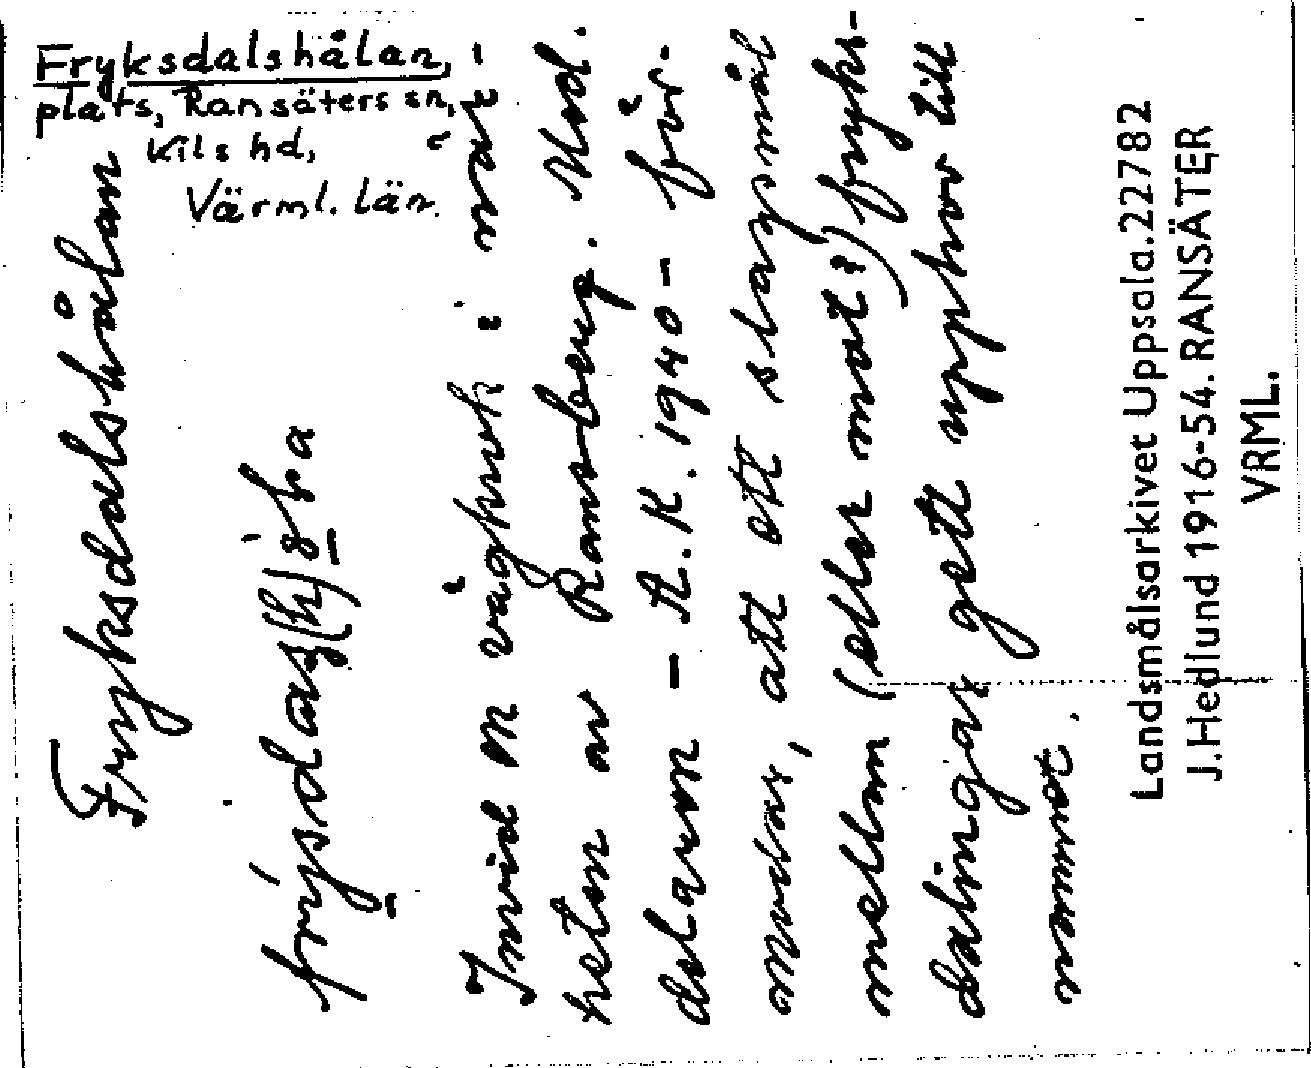 Fryksdalshålan,
plats, Ransäters sn,
Kils hd,
Värml. län.
Fryksdalshålan
Invid en vägkrok i när-
heten av Ransberg. Med.
delaren - A.K. 1940 - för-
modar, att ett slagsmål
mellan (eller mot?) fryks-
dalingar gett upphov till
namnet.
Landsmålsarkivet Uppsala.22782
J.Hedlund 1916-54. RANSÄTER
VRML.